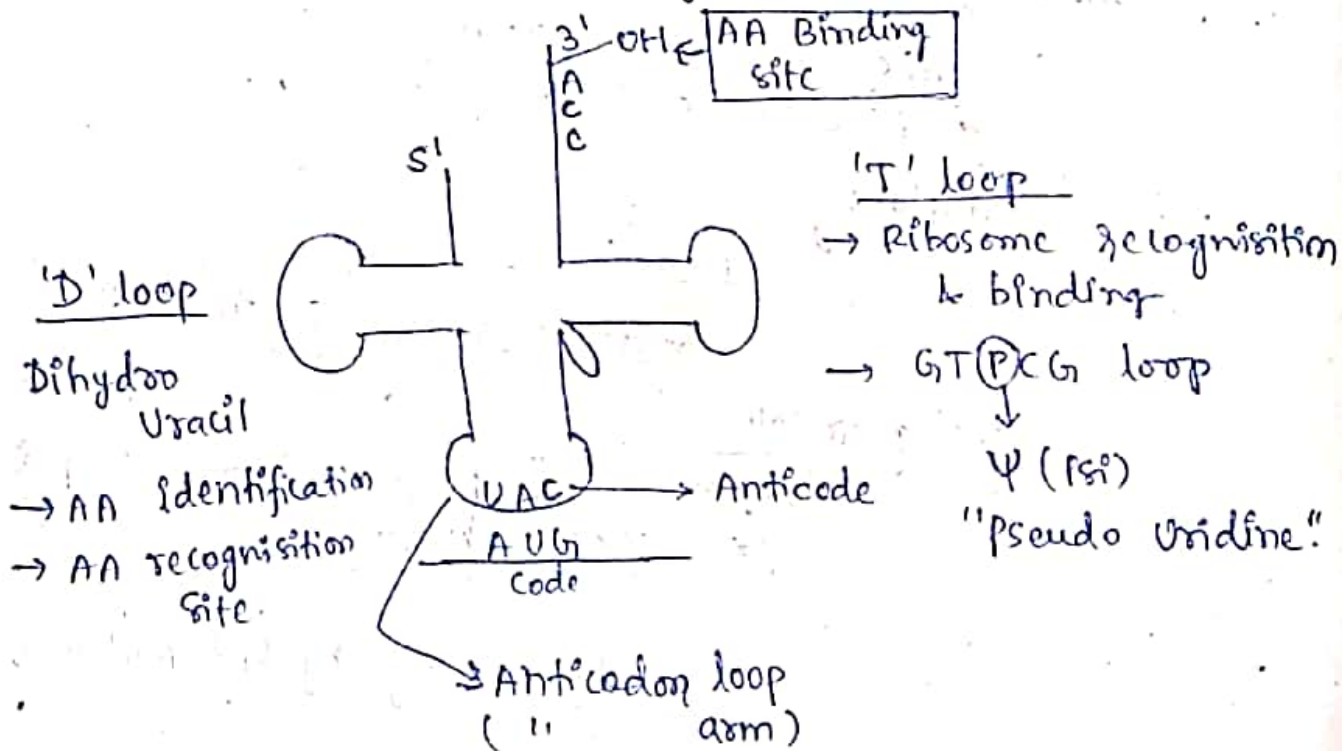 3' OH ← AA Binding
site
A
C
C
5'
'T' loop
→ Ribosome recognisition
& binding
→ GTⓅCG loop
↓
Ψ (Psi)
"Pseudo Uridine."
'D' loop
Dihydro
Uracil
→ AA identification
→ AA recognisition
site.
UAC → Anticode
AUG
Code
→ Anticadon loop
( " arm)